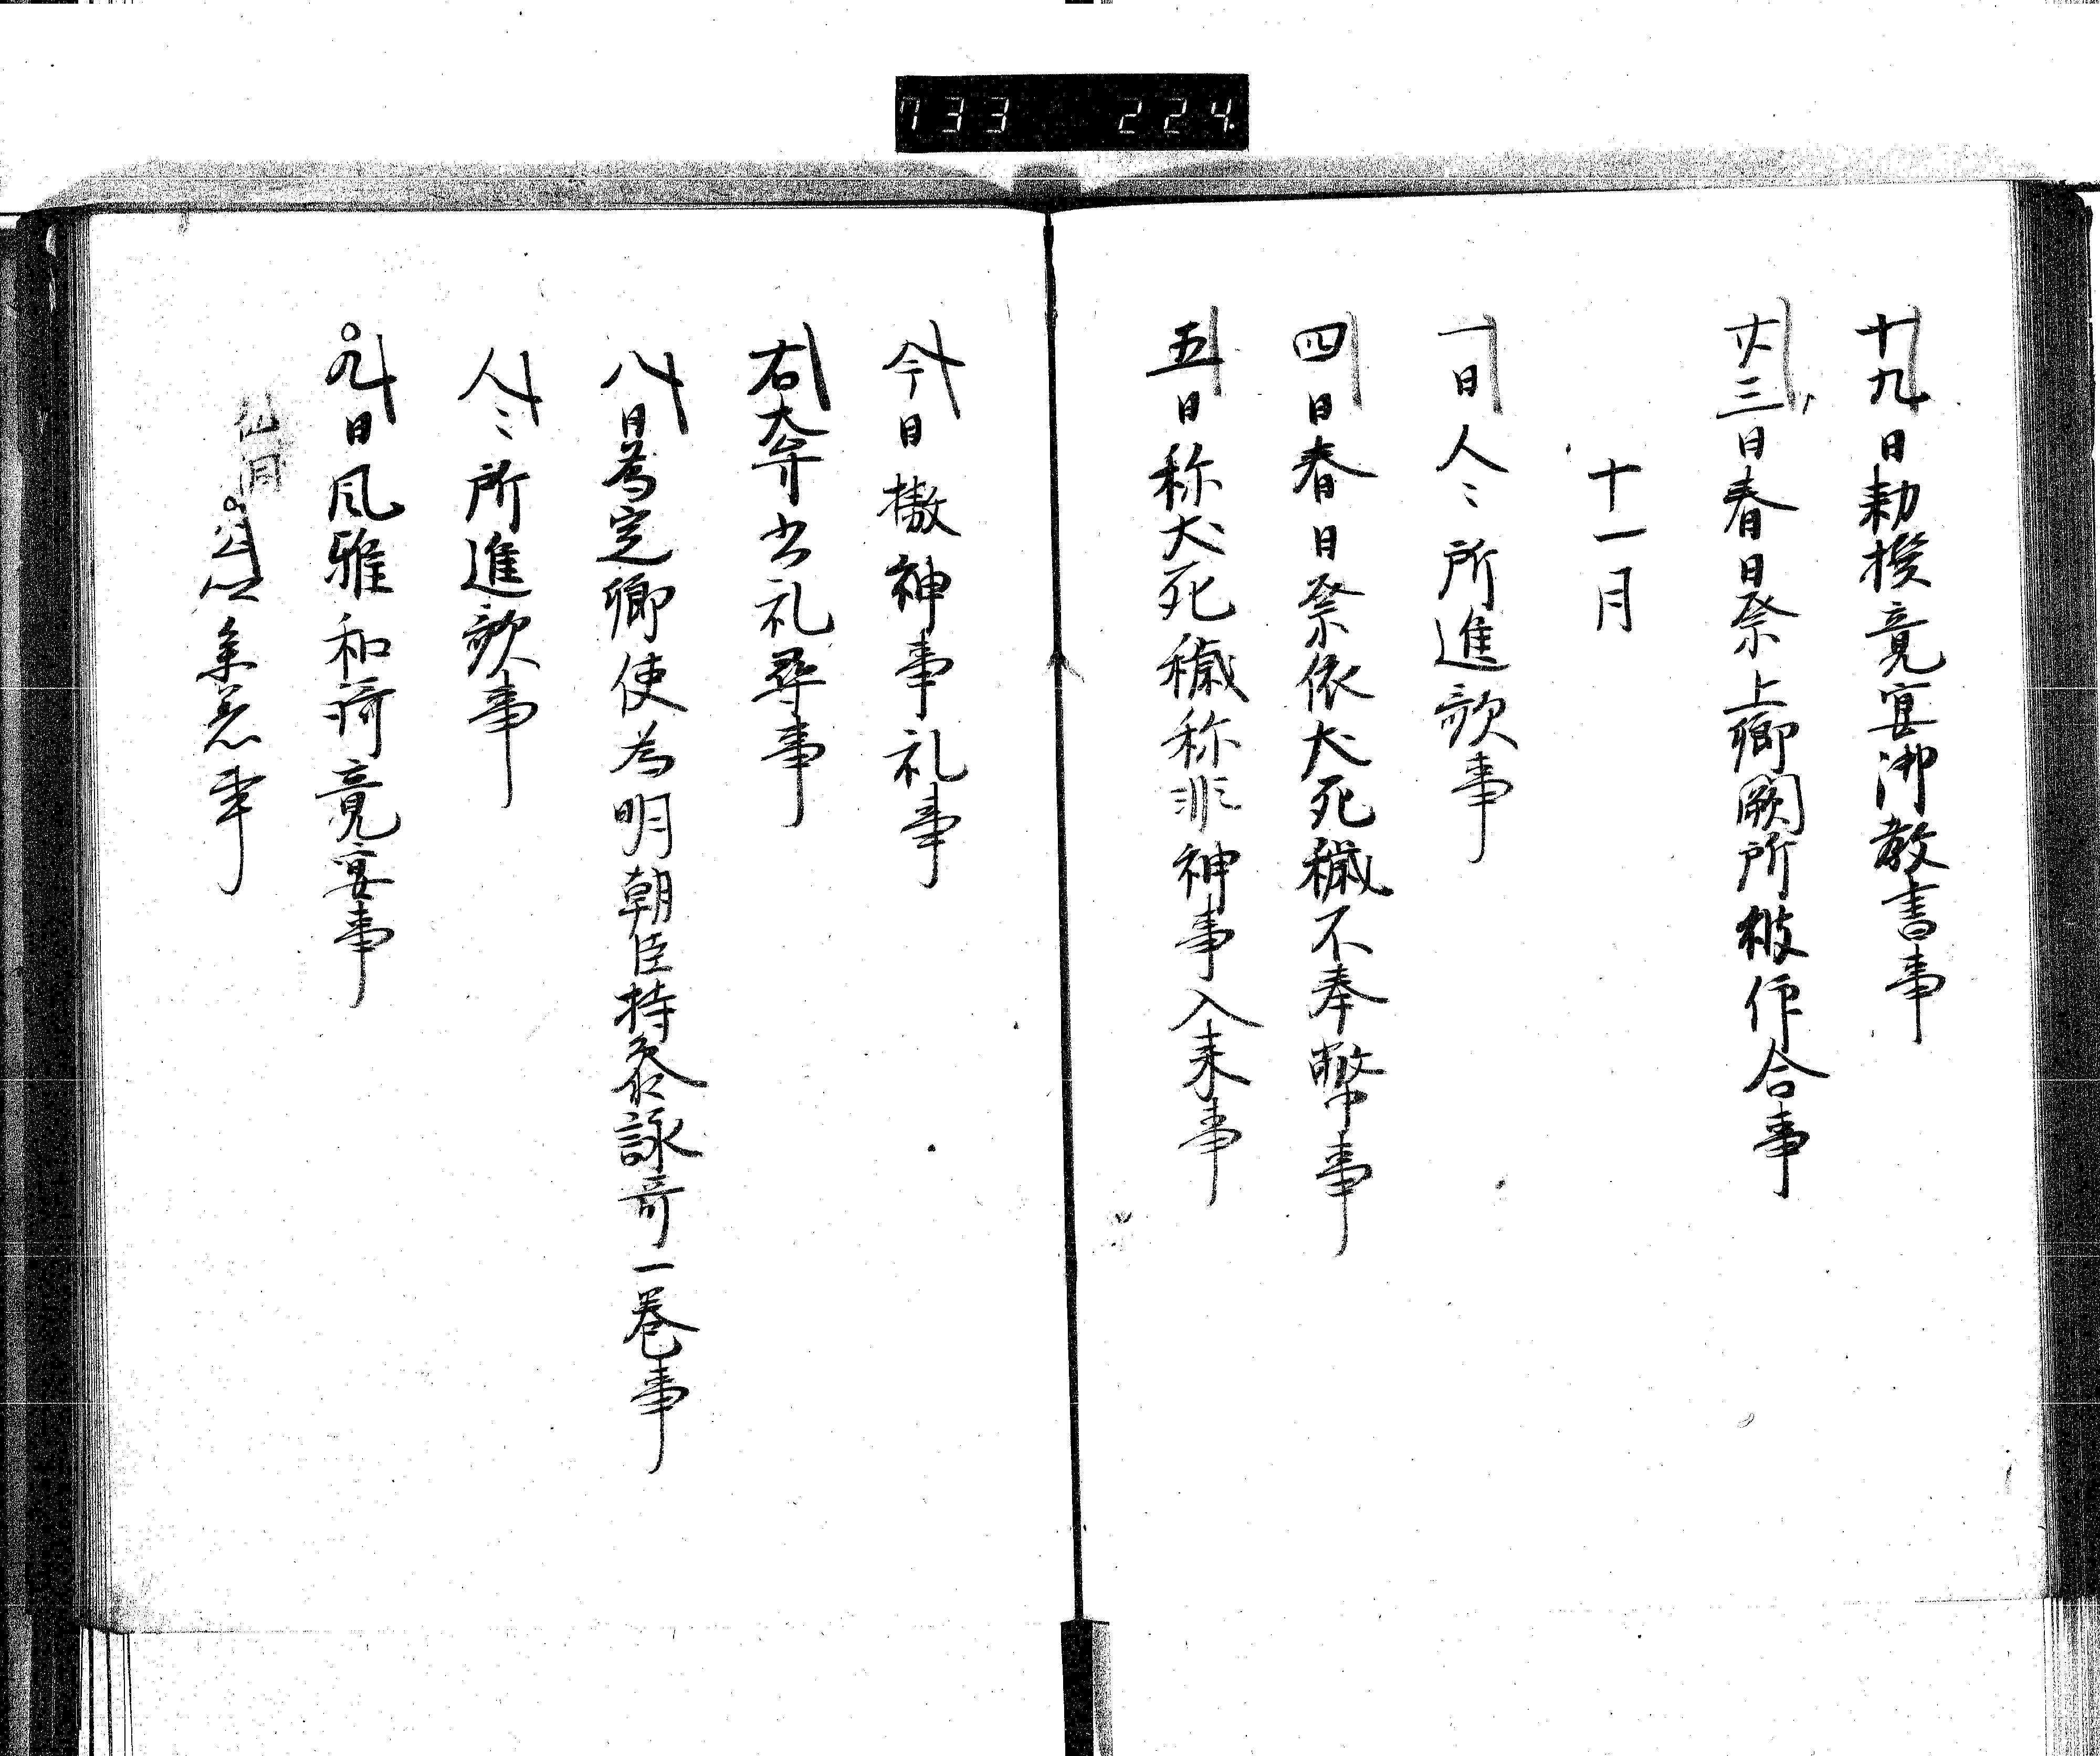 733 224
十九日勅撰竟宴御教書事
廿三日春日祭上卿闕所被作合事
十一月
一日人々所進歌事
四日春日祭依犬死穢不奉幣事
五日称犬死穢称非神事入来事
今日撤神事礼事
右大弁出礼尋事
八日為定卿使為明朝臣持参詠哥一巻事
人々所進歌事
九日風雅和謌竟宴事
仙洞
事